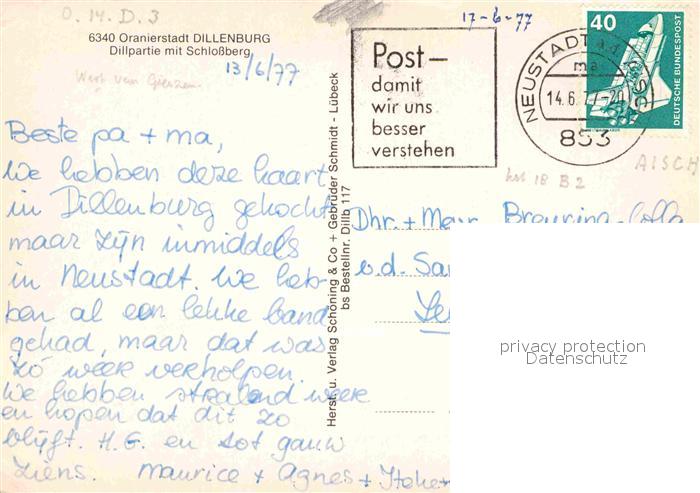 O. 14. D. 3
6340 Oranierstadt DILLENBURG
Dillpartie mit Schloßberg
13/6/77
17-6-77
Post-
damit
wir uns
besser
verstehen
NEUSTADT a.d.
14.6.77-20
853
40
DEUTSCHE BUNDESPOST
AISCH
18 B 2
Beste pa + ma,
We hebben deze kaart
in Dillenburg gekocht
maar zijn inmiddels
in Neustadt. We heb-
ben al een lekke band
gehad, maar dat was
zó weer verholpen.
We hebben stralend weer
en hopen dat dit zo
blijft. H.G. en tot gauw
ziens. Maurice + Agnes +
Herst. u. Verlag Schöning & Co + Gebrüder Schmidt - Lübeck
bs Bestellnr. Dillb 117
Dhr. + Mevr.
v.d.
privacy protection
Datenschutz